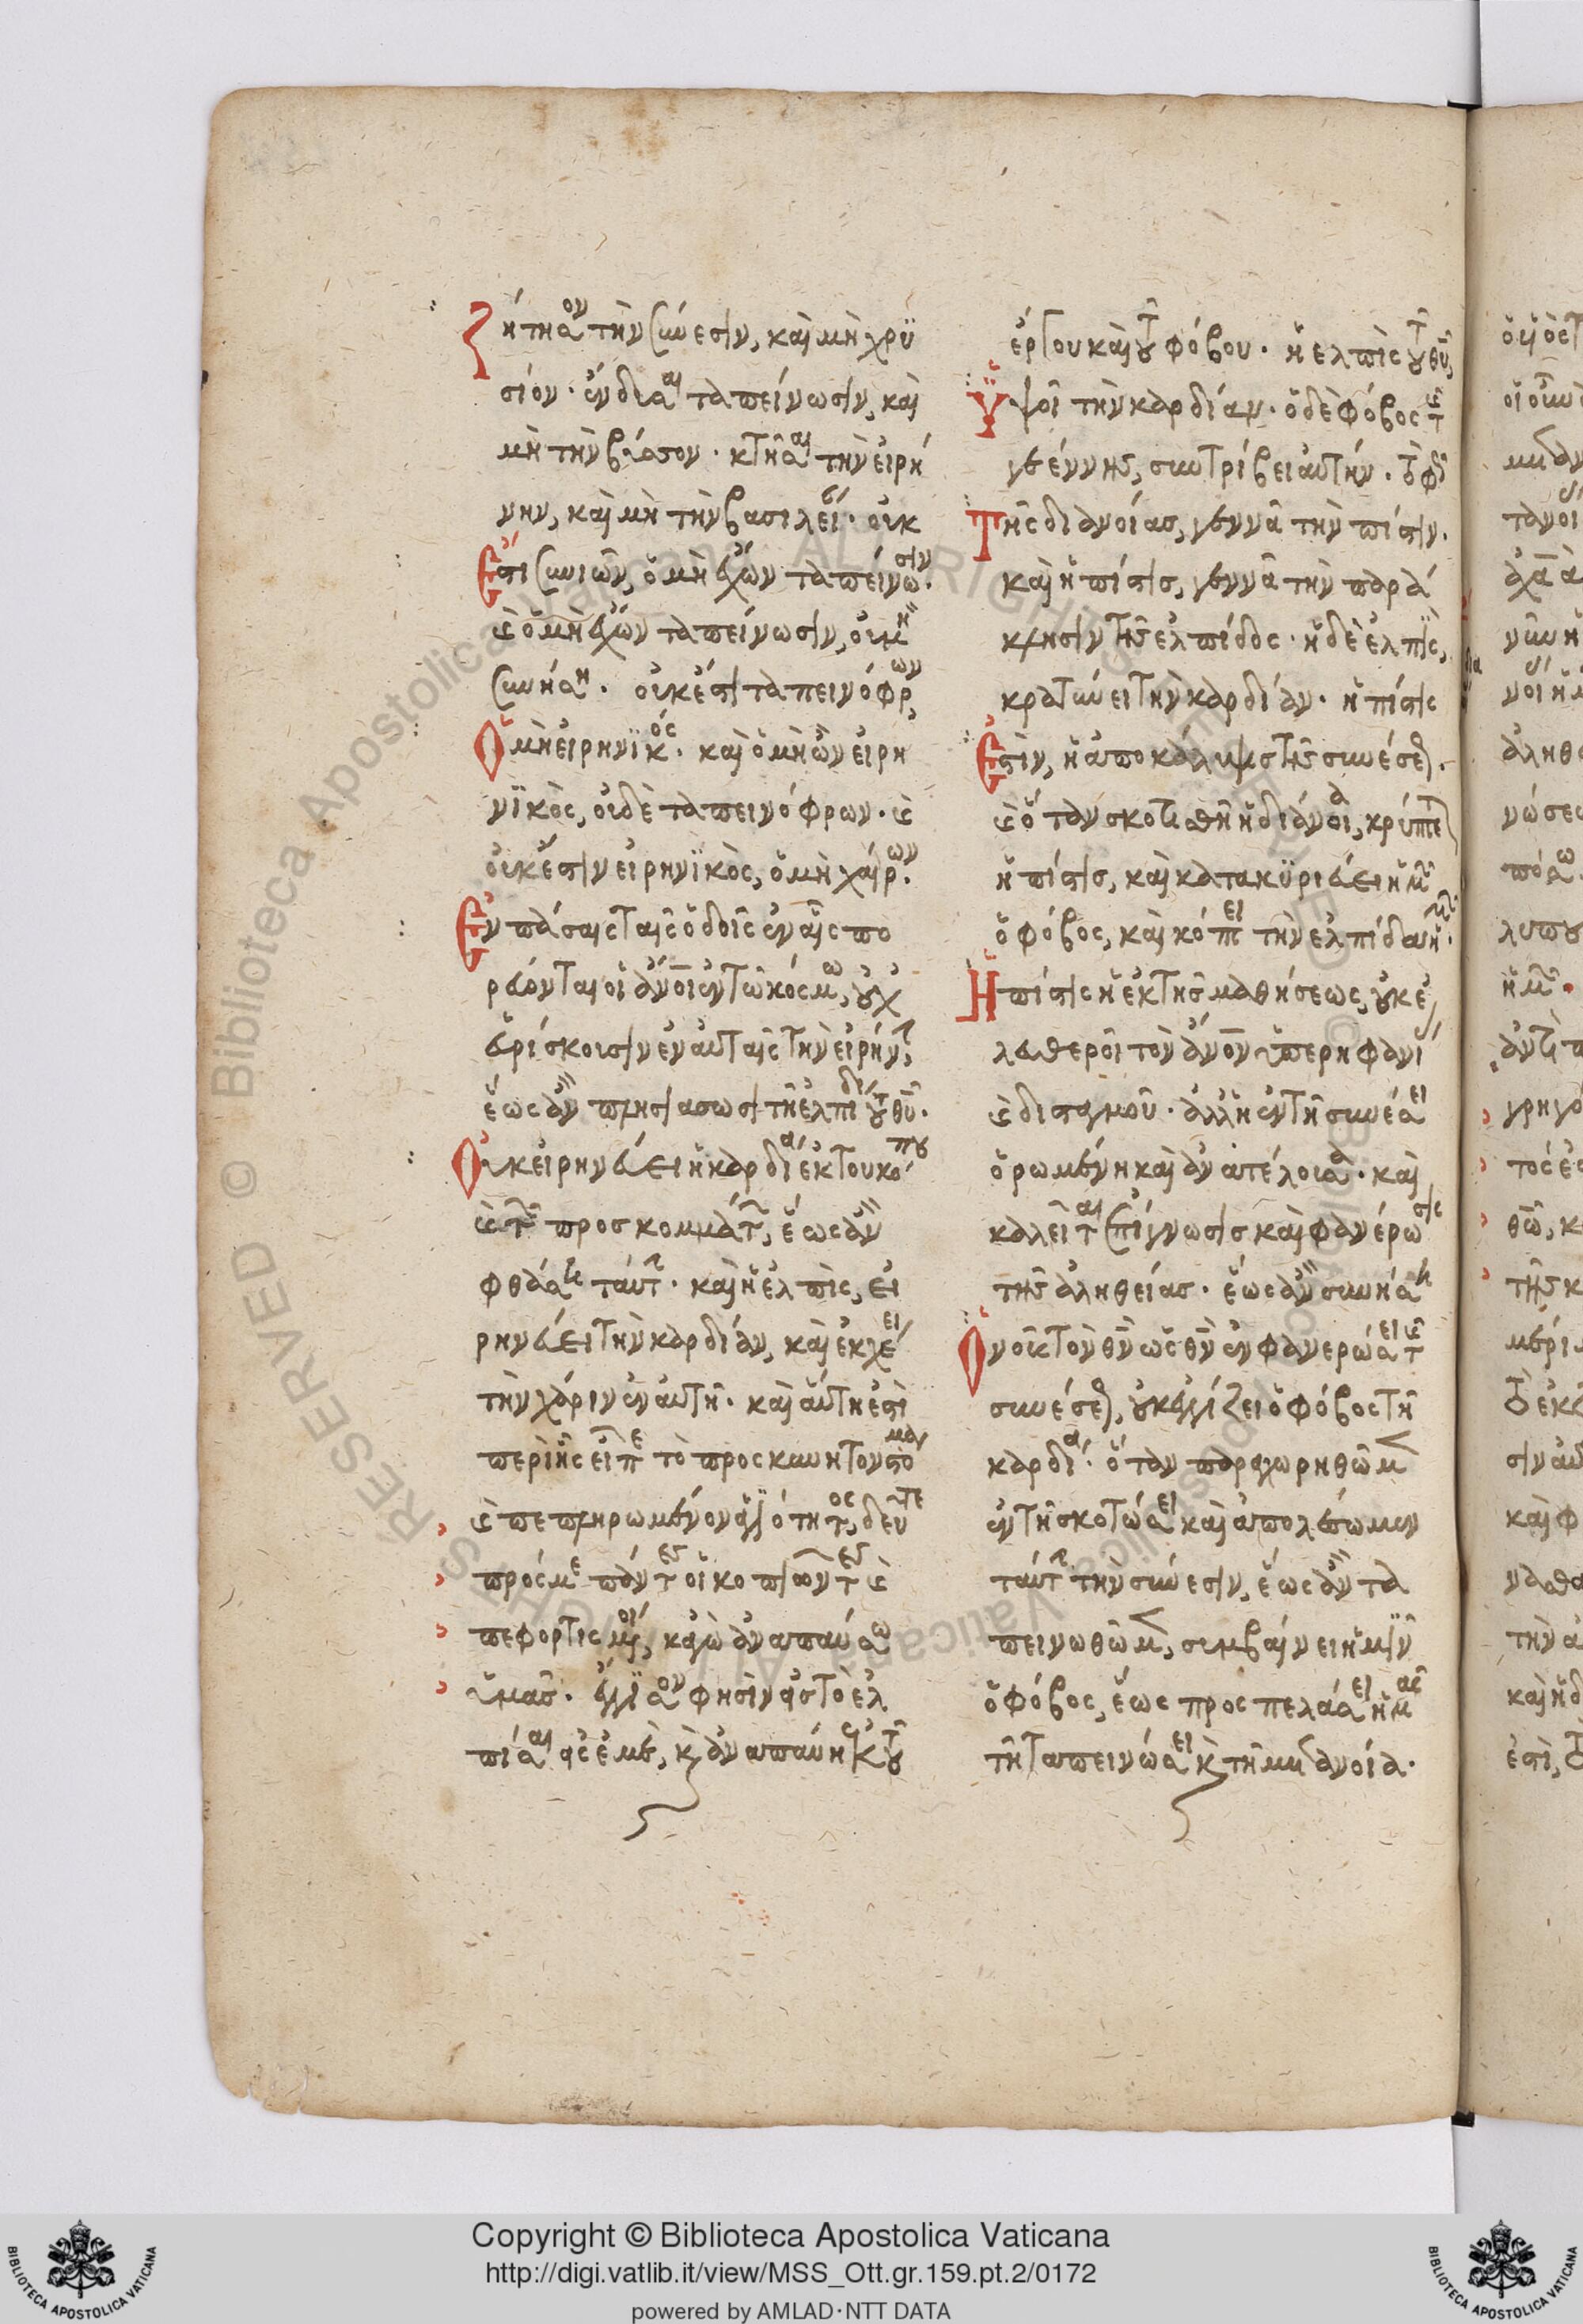 ζήτησον τὴν σύνεσιν, καὶ μὴ χρυ
σίον· ἔνδυσαι ταπείνωσιν, καὶ
μὴ τὴν βύσσον· κτῆσαι τὴν εἰρή
νην, καὶ μὴ τὴν βασιλείαν· οὐκ
ἔστι συνιῶν, ὁ μὴ ἔχων ταπείνωσιν.
καὶ ὁ μὴ ἔχων ταπείνωσιν, οὐ μὴ
συνήσῃ. οὐκ ἔστι ταπεινόφρων,
ὁ μὴ εἰρηνικός. καὶ ὁ μὴ ὢν εἰρη
νικὸς, οὐδὲ ταπεινόφρων. καὶ
οὐκ ἔστιν εἰρηνικὸς, ὁ μὴ χαίρων.
ἐν πάσαις ταῖς ὁδοῖς ἐν αἷς πο
ρεύονται οἱ ἄνοι ἐν τῷ κόσμω, οὐχ
εὑρίσκουσιν ἐν αὐταῖς τὴν εἰρήνην,
ἕως ἂν πλησιάσωσι τῇ ἐλπίδι τοῦ θυ.
οὐκ εἰρηνεύει ἡ καρδία ἐκ τοῦ κόπου
καὶ τῶν προσκομμάτων, ἕως ἂν
φθάσῃ ταύτην. καὶ ἡ ἐλπὶς, εἰ
ρηνεύει τὴν καρδίαν, καὶ ἐκχέει
τὴν χάριν ἐν αὐτῇ. καὶ αὕτη ἐστὶ
περὶ ἧς εἶπε τὸ προσκυνητὸν στόμα
καὶ πεπληρωμένον ἁγιότητος, δεῦτε
πρός με πάντες οἱ κοπιῶντες καὶ
πεφορτισμένοι, κἀγὼ ἀναπαύσω
ὑμᾶς. ἔγγισον φησὶν εἰς τὸ ἐλ
πίσαι εἰς ἐμέ, καὶ ἀναπαύῃ ἐκ τοῦ
ἔργου καὶ τοῦ φόβου. ἡ ἐλπὶς τοῦ θυ,
ὑψοῖ τὴν καρδίαν. ὁ δὲ φόβος τῆς
γεέννης, συντρίβει αὐτήν. τὸ φῶς
τῆς διανοίας, γεννᾶ τὴν πίστιν.
καὶ ἡ πίστις, γεννᾶ τὴν παρά
κλησιν τῆς ἐλπίδος. ἡ δὲ ἐλπὶς,
κρατύνει τὴν καρδίαν. ἡ πίστις
ἐστὶν, ἡ ἀποκάλυψις τῆς συνέσεως.
καὶ ὅταν σκοτισθῇ ἡ διάνοια, κρύπτεται
ἡ πίστις, καὶ κατακυριεύει ἡμῶν
ὁ φόβος, καὶ κόπτει τὴν ἐλπίδα ἡμῶν.
ἡ πίστις ἡ ἐκ τῆς μαθήσεως, οὐκ ἐ
λευθεροῖ τὸν ἄνον ὑπερηφανίας
καὶ δισταγμοῦ. ἀλλ' ἡ ἐν τῇ συνέσει
ὁρωμένη καὶ ἀνατέλουσα. καὶ
καλεῖται ἐπίγνωσις καὶ φανέρωσις
τῆς ἀληθείας. ἕως ἂν συνήσῃ
ὁ νοῦς τὸν θν ὡς θν ἐν φανερώσει τῆς
συνέσεως, οὐκ ἐγγίζει ὁ φόβος τῇ
καρδία. ὅταν παραχωρηθῶμεν
ἐν τῇ σκοτώσει καὶ ἀπολέσωμεν
ταύτην τὴν σύνεσιν, ἕως ἂν τα
πεινωθῶμεν, συμβαίνει ἡμῖν
ὁ φόβος, ἕως προσπελάσει ἡμᾶς
τῇ ταπεινώσει καὶ τῇ μετανοία.
Copyright © Biblioteca Apostolica Vaticana
http://digi.vatlib.it/view/MSS_Ott.gr.159.pt.2/0172
powered by AMLAD·NTT DATA
BIBLIOTECA APOSTOLICA VATICANA
BIBLIOTECA APOSTOLICA VATICANA